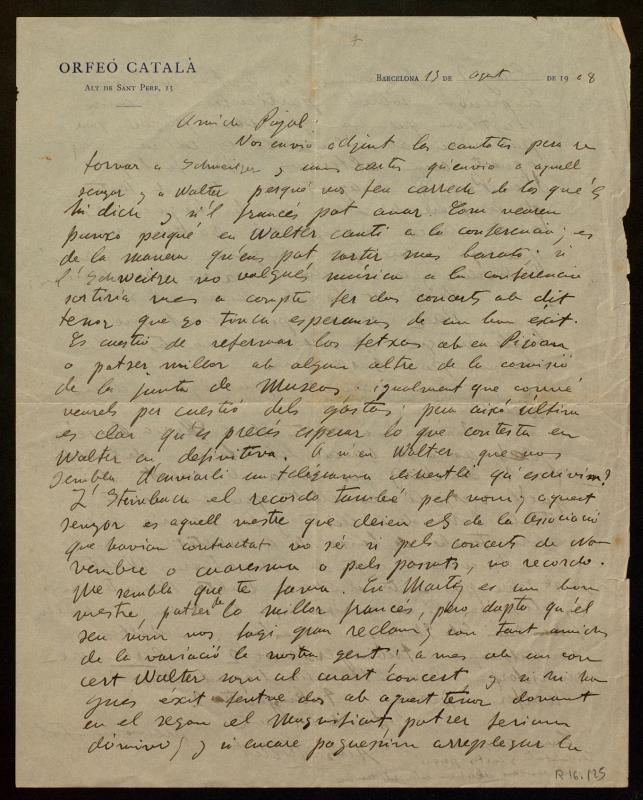 ORFEÓ CATALÀ
ALT DE SANT PERE, 13
BARCELONA 13 DE agost DE 1908
Amich Pujol:
Vos envio adjunt las cantatas pera re
tornar a Schweitzer y unas cartas qu'envio a aquell
senyor y a Walter perqué vos feu carrech de lo qué 's
hi dich y si'l francés pot anar. Com veureu
perqué en Walter canti a la conferencia; es
de la manera qu'ens pot sortir mes barato; si
l'Schweitzer no volgués música a la conferencia
sortiria mes a compte fer dos concerts ab dit
tenor que jo tinch esperansas de un bon exit.
Es cuestió de refermar los fetxas ab en Pijoan
o potser millor ab algun altre de la comisió
de la junta de Museos. igualment que convé
veurels per cuestió dels gastos; pera aixó últim
es clar qu'es precés esperar lo que contesta en
Walter en definitiva. A n'en Walter que vos
sembla d'enviarli un telegrama dihentli qu'escrivim?
L'Steinbach el recordo també pel nom; aquest
senyor es aquell mestre que deien els de la Associació
que havian contractat no sé si pels concerts de No
vembre o cuaresma o pels passats, no recordo.
Me sembla que te fama. En Marty es un bon
mestre, potser de lo millor francés, pero dupto qu'el
seu nom nos fagi gran reclam y con tant amichs
de la variació la nostra gent; a mes ab un con
cert Walter som al cuart concert, y si hi ha
gues éxit fentne dos ab aquest tenor donant
en el segon el Magnificat, potser feriam
dominó; y si encare poguessim arreplegar la
R 16.135